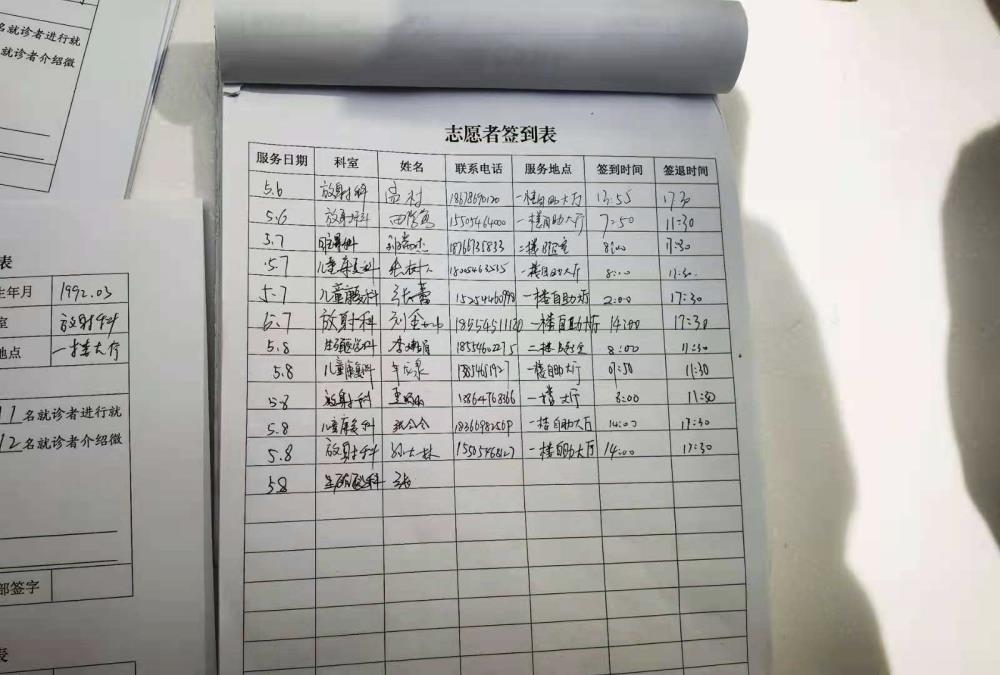 名就诊者进行就
就诊者介绍微
志愿者签到表
服务日期 科室 姓名 联系电话 服务地点 签到时间 签退时间
5.6 放射科 孟村 18678690120 一楼自助大厅 13:55 17:30
5.6 放射科 15505464000 一楼自助大厅 7:50 11:30
5.7 18766735833 8:00 11:30
5.7 儿童康复科 一楼自助大厅 8:00 11:30
5.7 儿童康复科 张蕾 15254460998 一楼自助大厅 2:00 17:30
6.7 放射科 18554511120 一楼自助大厅 14:00 17:30
5.8 生殖医学科 18554602275 8:00 11:30
5.8 儿童康复科 一楼自助大厅 07:50 11:30
5.8 放射科 13864768366 一楼大厅 8:00 11:30
5.8 儿童康复科 18366982509 一楼自助大厅 14:00 17:30
5.8 放射科 孙大林 一楼自助大厅 14:00 17:30
5.8 生殖医学科 张
表
生年月 1992.03
室 放射科
地点 一楼大厅
11名就诊者进行就
12名就诊者介绍微
部签字
表